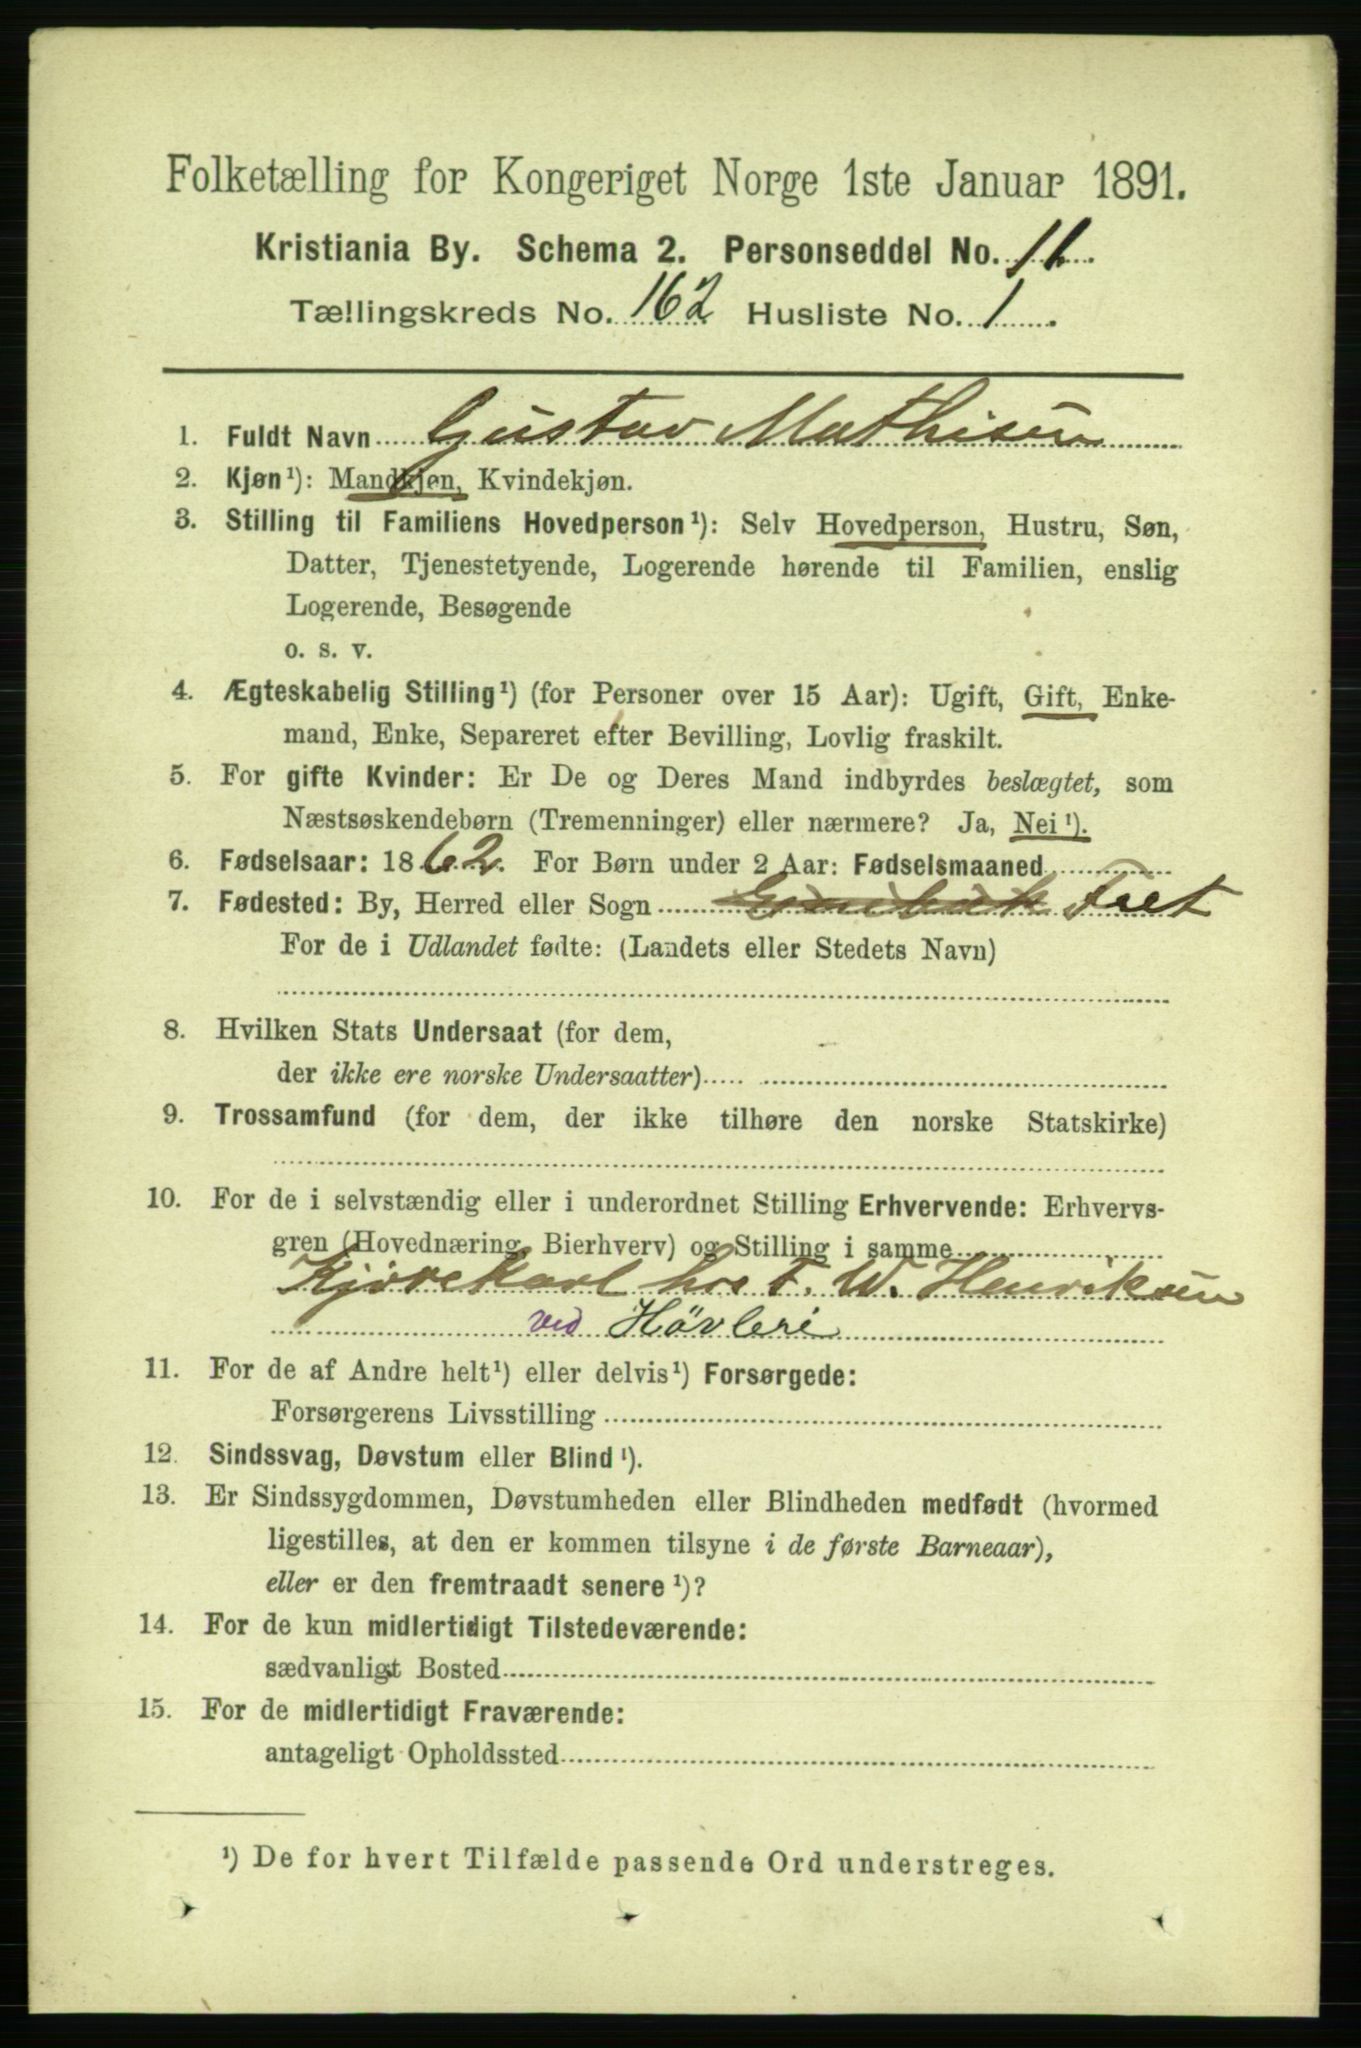 Folketælling for Kongeriget Norge 1ste Januar 1891.
Kristiania By. Schema 2. Personseddel No. 11.
Tællingskreds No. 162 Husliste No. 1.
1. Fuldt Navn Gustav Mathisen
2. Kjøn¹): Mandkjøn, Kvindekjøn.
3. Stilling til Familiens Hovedperson¹): Selv Hovedperson, Hustru, Søn,
Datter, Tjenestetyende, Logerende hørende til Familien, enslig
Logerende, Besøgende
o. s. v.
4. Ægteskabelig Stilling¹) (for Personer over 15 Aar): Ugift, Gift, Enke-
mand, Enke, Separeret efter Bevilling, Lovlig fraskilt.
5. For gifte Kvinder: Er De og Deres Mand indbyrdes beslægtet, som
Næstsøskendebørn (Tremenninger) eller nærmere? Ja, Nei¹).
6. Fødselsaar: 1862. For Børn under 2 Aar: Fødselsmaaned
7. Fødested: By, Herred eller Sogn Fæet
For de i Udlandet fødte: (Landets eller Stedets Navn)
8. Hvilken Stats Undersaat (for dem,
der ikke ere norske Undersaatter)
9. Trossamfund (for dem, der ikke tilhøre den norske Statskirke)
10. For de i selvstændig eller i underordnet Stilling Erhvervende: Erhvervs-
gren (Hovednæring, Bierhverv) og Stilling i samme
Kjørekarl hos F. W. Henriksen
ved Høvleri
11. For de af Andre helt¹) eller delvis¹) Forsørgede:
Forsørgerens Livsstilling
12. Sindssvag, Døvstum eller Blind¹).
13. Er Sindssygdommen, Døvstumheden eller Blindheden medfødt (hvormed
ligestilles, at den er kommen tilsyne i de første Barneaar),
eller er den fremtraadt senere¹)?
14. For de kun midlertidigt Tilstedeværende:
sædvanligt Bosted
15. For de midlertidigt Fraværende:
antageligt Opholdssted
¹) De for hvert Tilfælde passende Ord understreges.